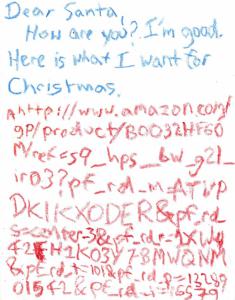 Dear Santa,
How are you? I'm good.
Here is what I want for
Christmas.
http://www.amazon.com/
gp/product/B0032HF60
M/ref=s9_hps_bw_g21_
ir03?pf_rd_m=ATVP
DKIKX0DER&pf_rd_
s=center-3&pf_rd_r=1XW4
42FH1K03Y78MWQNM
&pf_rd_t=101&pf_rd_p=12289
01542&pf_rd_i=165